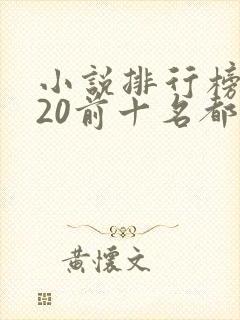 小說排行榜
20前十名都
黃懷文